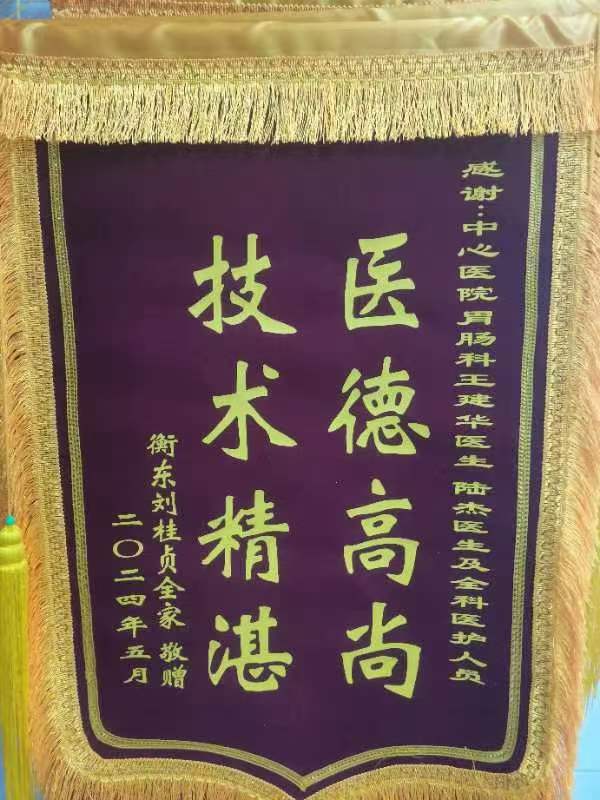 感谢:中心医院胃肠科王建华医生 陆杰医生及全科医护人员
医德高尚
技术精湛
衡东刘桂贞全家 敬赠
二〇二四年五月